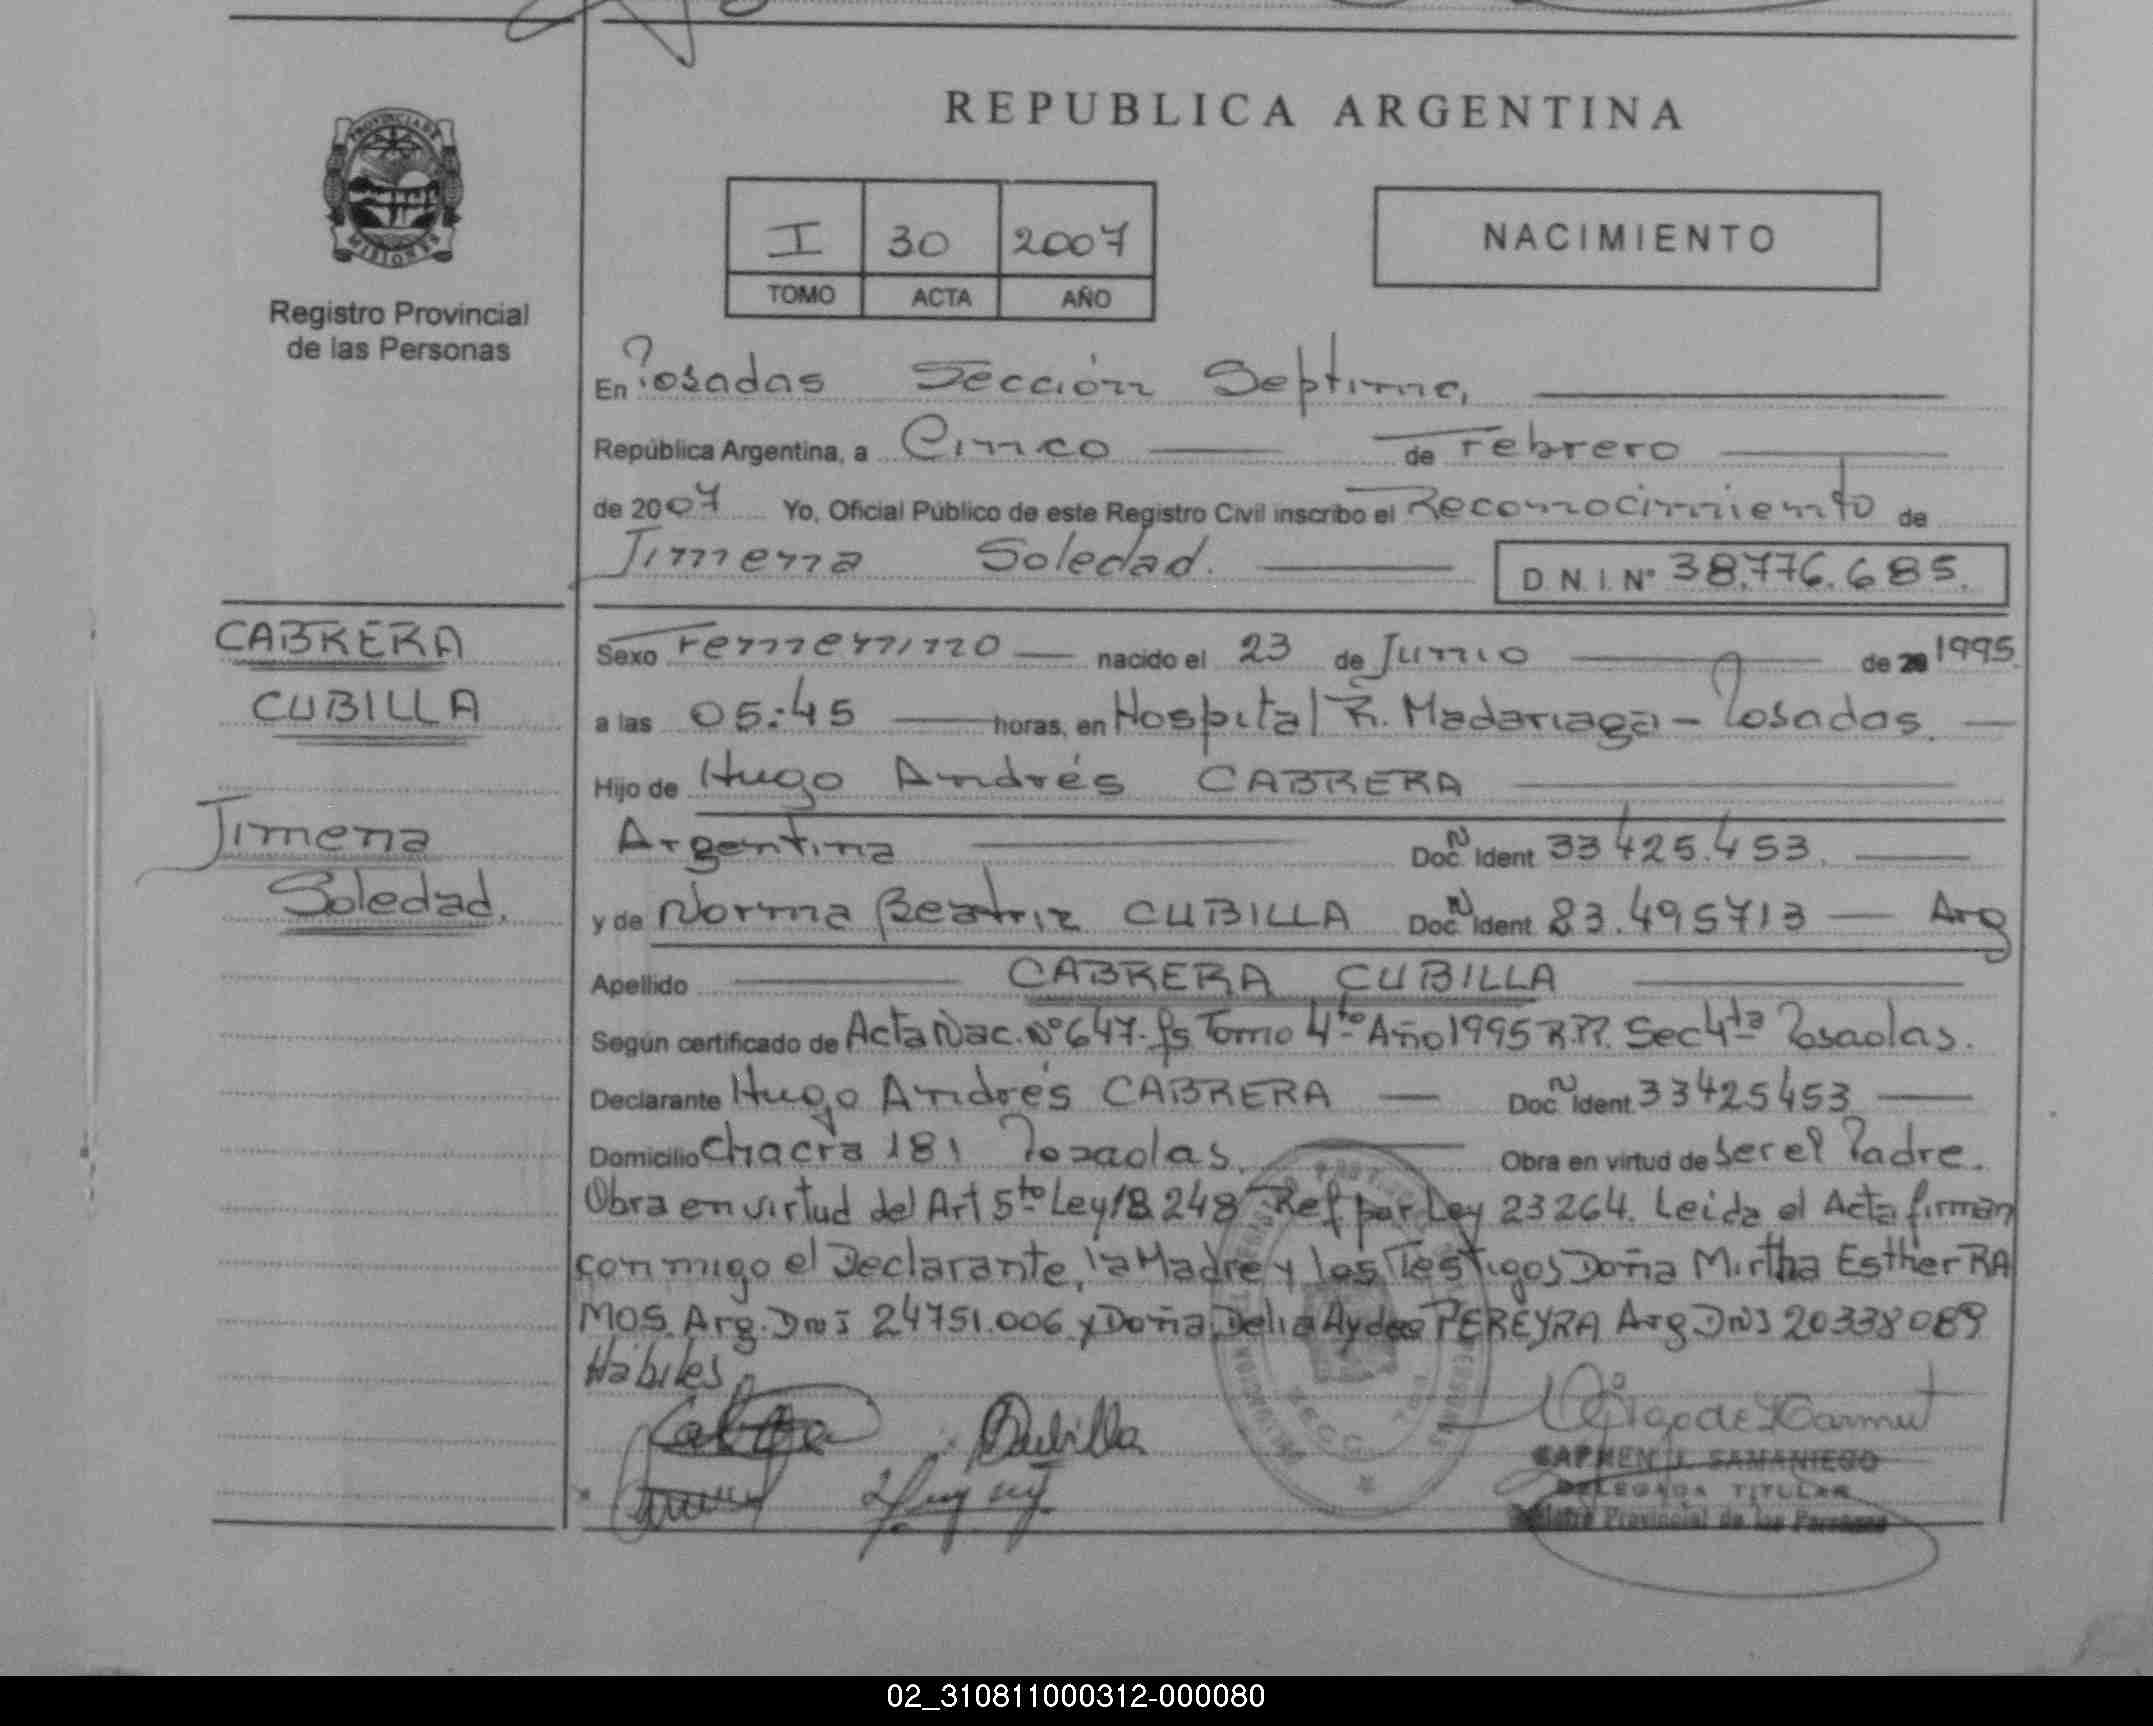 REPUBLICA ARGENTINA
PROVINCIA DE
MISIONES
Registro Provincial
de las Personas
I 30 2007
TOMO ACTA AÑO
NACIMIENTO
En Posadas Sección Septima,
República Argentina, a Cinco de Febrero
de 2007 Yo, Oficial Público de este Registro Civil inscribo el Reconocimiento de
Jimena Soledad. D.N.I. Nº 38.776.685.
CABRERA
CUBILLA
Jimena
Soledad.
Sexo Femenino nacido el 23 de Junio de 20 1995
a las 05:45 horas, en Hospital R. Madariaga - Posadas.
Hijo de Hugo Andrés CABRERA
Argentina Doc. N Ident 33425.453.
y de Norma Beatriz CUBILLA Doc. N Ident. 23.495713 Arg
Apellido CABRERA CUBILLA
Según certificado de Acta Nac. Nº 647- fs Tomo 4to Año 1995 R.P.P. Sec 4ta Posadas.
Declarante Hugo Andrés CABRERA Doc. N Ident. 33425453
Domicilio Chacra 181 Posadas. Obra en virtud de Ser el Padre.
Obra en virtud del Art 5to Ley 18.248 Ref por Ley 23264. Leida el Acta firman
conmigo el Declarante, la Madre y los Testigos Doña Mirtha Esther RA
MOS. Arg. DNI 24751.006 y Doña Delia Aydee PEREYRA Arg DNI 20338089
Hábiles
Cubilla
CARMEN J. SAMANIEGO
DELEGADA TITULAR
Registro Provincial de las Personas
02_310811000312-000080